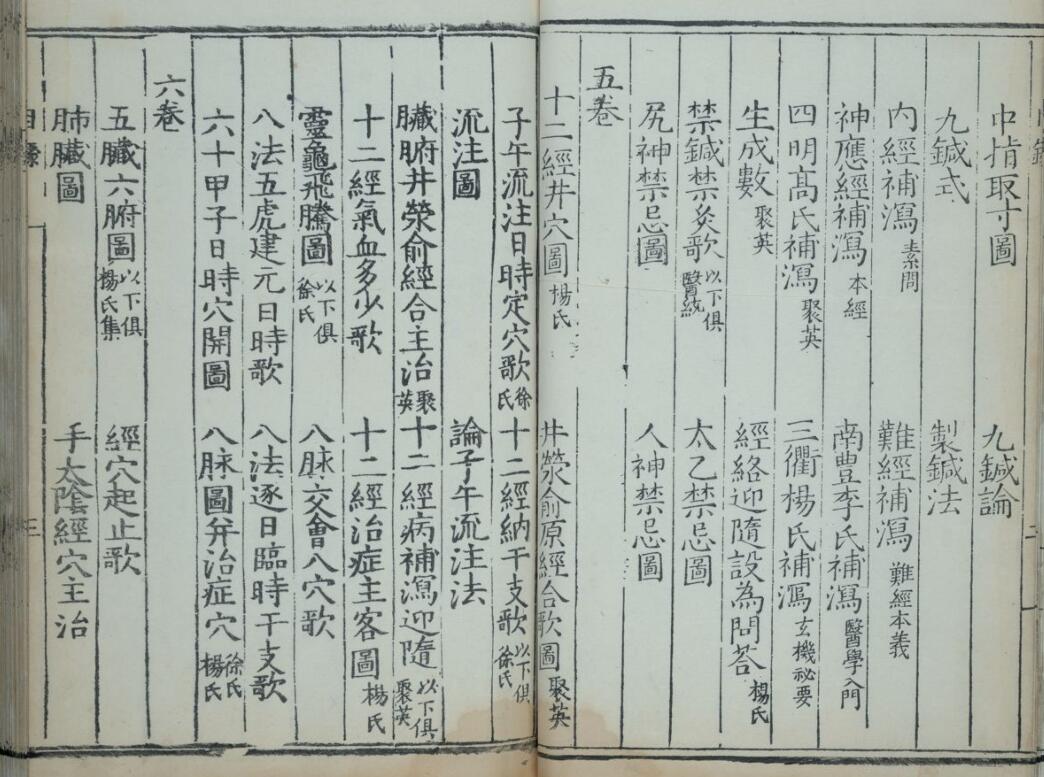 中指取寸圖 九鍼論
九鍼式 製鍼法
內經補瀉 素問 難經補瀉 難經本義
神應經補瀉 本經 南豊李氏補瀉 醫學入門
四明髙氏補瀉 聚英 三衢楊氏補瀉 玄機祕要
生成數 聚英 經絡迎隨設為問荅 楊氏
禁鍼禁灸歌 以下俱醫統 太乙禁忌圖
尻神禁忌圖 人神禁忌圖
五卷
十二經井穴圖 楊氏 井滎俞原經合歌圖 聚英
子午流注日時定穴歌 徐氏 十二經納干支歌 以下俱徐氏
流注圖 論子午流注法
臟腑井滎俞經合主治 聚英 十二經病補瀉迎隨 以下俱聚英
十二經氣血多少歌 十二經治症主客圖 楊氏
靈龜飛騰圖 以下俱徐氏 八脉交會八穴歌
八法五虎建元日時歌 八法逐日臨時干支歌
六十甲子日時穴開圖 八脉圖并治症穴 徐氏楊氏
六卷
五臟六腑圖 以下俱楊氏集 經穴起止歌
肺臟圖 手太陰經穴主治